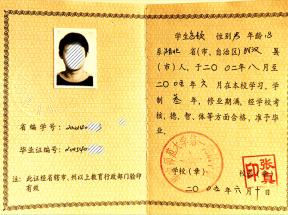 学生 性别 男 年龄 18
系 湖北 省(市、自治区) 武汉 县
(市)人,于二〇〇二年八月至
二〇〇五年六月在本校学习,学
制 叁 年,修业期满,经学校考
核,德、智、体等方面合格,准予毕
业。
学校(章) 校
二〇〇五年六月十日
张真
印
省编学号:
毕业证编号:
注:此证经省辖市、州以上教育行政部门验印
有效